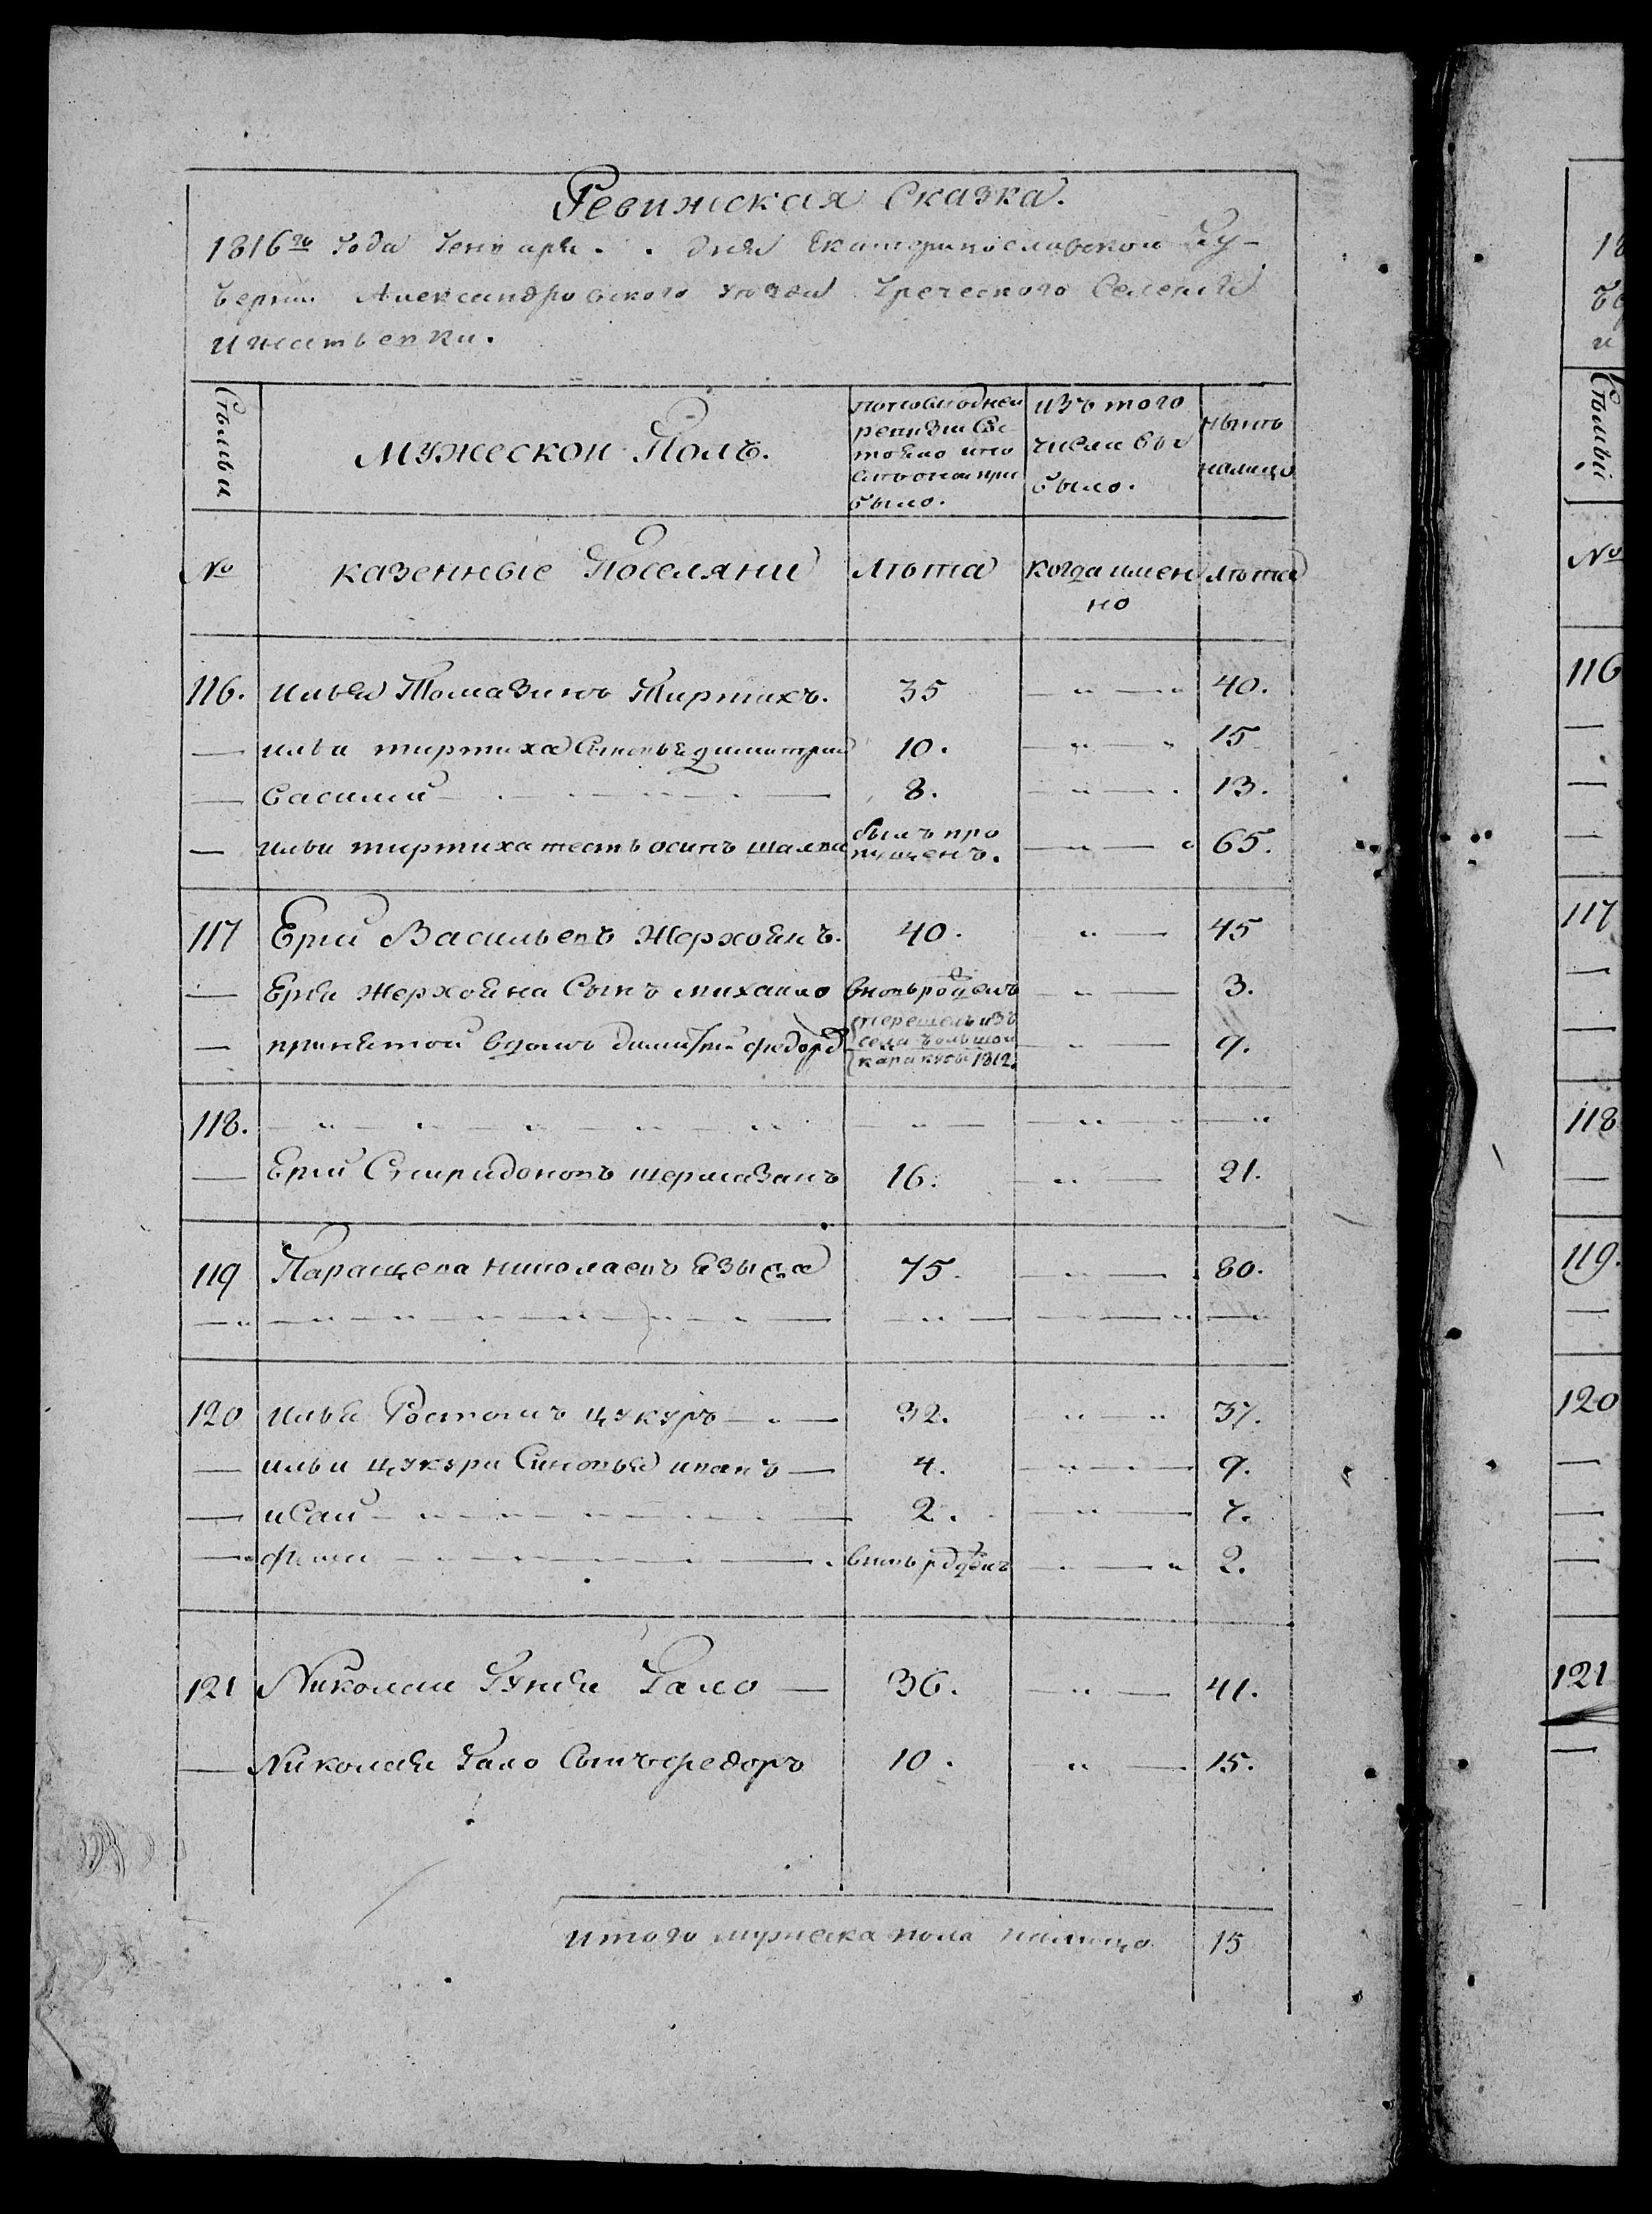 Ревижская Сказка.
1816го Года Генваря . . дня Екатеринославской Гу-
бернии Александровского уезда Греческого Селения
Игнатьевки.
Столпы
мужеской Полъ.
по последней
ревизии Со-
стояло и по
сле оной при
было.
изъ того
числа вы
было.
ныне
налицо
№
казенные Поселяни
лѣта
когда имен
но
лѣта
116. илья Томазинъ Тиртихъ. 35 40.
— ильи тиртиха Сыновья димитрий 10. 15
— василий 8. 13.
— ильи тиртиха тесть осипъ шалпи былъ про
пущенъ. 65.
117 Ерий Васильевъ Жерхоянъ. 40. 45
— Ерия Жерхояна Сынъ михаило вновь рожденъ 3.
— принятой в домъ димитрий федор перешелъ изъ
села большой
каракубы 1812. 9.
118. — „ — „ —
— Ерий Спиридоновъ шермазанъ 16. 21.
119 Паращева николаевъ 75. 80.
120 илья Ростомъ цукуръ 32. 37.
— ильи цукури Синовья иванъ 4. 9.
— исай 2. 7.
— вновь рожденъ 2.
121 Николай Гало 36. 41.
— Николая Гало Сынъ федоръ 10. 15.
итого мужеска пола налицо 15
18
бе
и
Столпы
№
116
117
118
119.
120
121